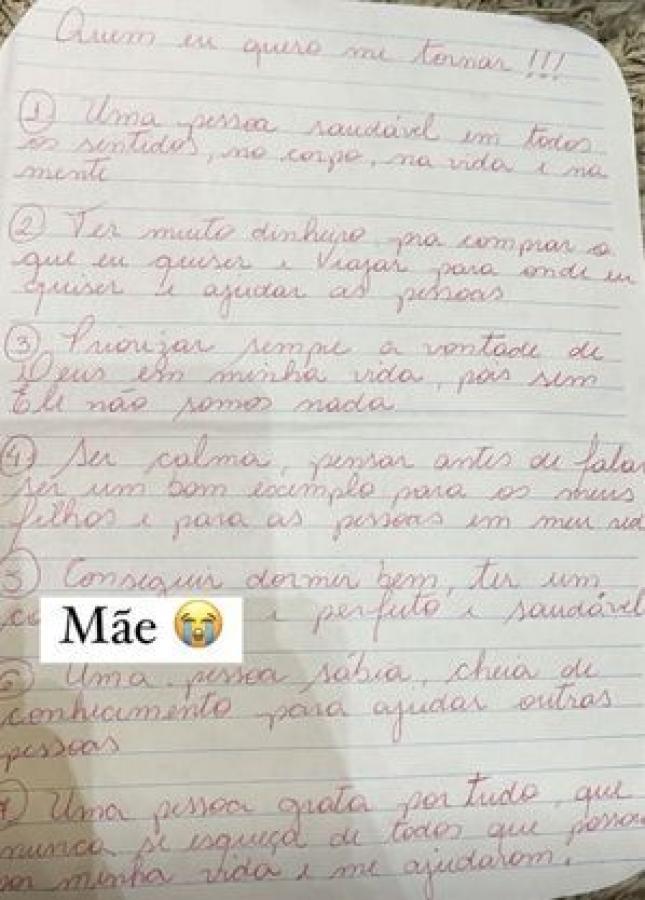 Quem eu quero me tornar !!!
① Uma pessoa saudável em todos
os sentidos, no corpo, na vida e na
mente
② Ter muito dinheiro pra comprar o
que eu quiser e viajar para onde eu
quiser e ajudar as pessoas
③ Priorizar sempre a vontade de
Deus em minha vida, pois sem
Ele não somos nada
④ Ser calma, pensar antes de falar
ser um bom exemplo para os meus
filhos e para as pessoas em meu
5 Conseguir dormir bem, ter um
e perfeito e saudável
Mãe 😭
6 Uma pessoa sábia, cheia de
conhecimento para ajudar outras
pessoas
7 Uma pessoa grata por tudo, que
nunca se esqueça de todos que
por minha vida e me ajudaram.